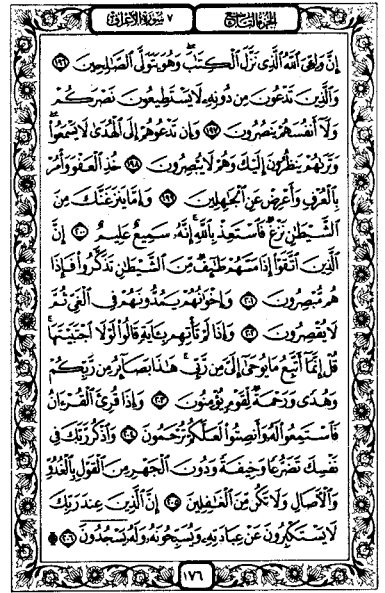 الجزء التاسع
٧ سورة الأعراف
إِنَّ وَلِـِّۧيَ ٱللَّهُ ٱلَّذِي نَزَّلَ ٱلْكِتَٰبَ ۖ وَهُوَ يَتَوَلَّى ٱلصَّٰلِحِينَ ١٩٦
وَٱلَّذِينَ تَدْعُونَ مِن دُونِهِۦ لَا يَسْتَطِيعُونَ نَصْرَكُمْ
وَلَآ أَنفُسَهُمْ يَنصُرُونَ ١٩٧ وَإِن تَدْعُوهُمْ إِلَى ٱلْهُدَىٰ لَا يَسْمَعُوا۟ ۖ
وَتَرَىٰهُمْ يَنظُرُونَ إِلَيْكَ وَهُمْ لَا يُبْصِرُونَ ١٩٨ خُذِ ٱلْعَفْوَ وَأْمُرْ
بِٱلْعُرْفِ وَأَعْرِضْ عَنِ ٱلْجَٰهِلِينَ ١٩٩ وَإِمَّا يَنزَغَنَّكَ مِنَ
ٱلشَّيْطَٰنِ نَزْغٌ فَٱسْتَعِذْ بِٱللَّهِ ۚ إِنَّهُۥ سَمِيعٌ عَلِيمٌ ٢٠٠ إِنَّ
ٱلَّذِينَ ٱتَّقَوْا۟ إِذَا مَسَّهُمْ طَٰٓئِفٌ مِّنَ ٱلشَّيْطَٰنِ تَذَكَّرُوا۟ فَإِذَا
هُم مُّبْصِرُونَ ٢٠١ وَإِخْوَٰنُهُمْ يَمُدُّونَهُمْ فِي ٱلْغَيِّ ثُمَّ
لَا يُقْصِرُونَ ٢٠٢ وَإِذَا لَمْ تَأْتِهِم بِـَٔايَةٍ قَالُوا۟ لَوْلَا ٱجْتَبَيْتَهَا ۚ
قُلْ إِنَّمَآ أَتَّبِعُ مَا يُوحَىٰٓ إِلَيَّ مِن رَّبِّي ۚ هَٰذَا بَصَآئِرُ مِن رَّبِّكُمْ
وَهُدًى وَرَحْمَةٌ لِّقَوْمٍ يُؤْمِنُونَ ٢٠٣ وَإِذَا قُرِئَ ٱلْقُرْءَانُ
فَٱسْتَمِعُوا۟ لَهُۥ وَأَنصِتُوا۟ لَعَلَّكُمْ تُرْحَمُونَ ٢٠٤ وَٱذْكُر رَّبَّكَ فِي
نَفْسِكَ تَضَرُّعًا وَخِيفَةً وَدُونَ ٱلْجَهْرِ مِنَ ٱلْقَوْلِ بِٱلْغُدُوِّ
وَٱلْءَاصَالِ وَلَا تَكُن مِّنَ ٱلْغَٰفِلِينَ ٢٠٥ إِنَّ ٱلَّذِينَ عِندَ رَبِّكَ
لَا يَسْتَكْبِرُونَ عَنْ عِبَادَتِهِۦ وَيُسَبِّحُونَهُۥ وَلَهُۥ يَسْجُدُونَ ۩ ٢٠٦
١٧٦